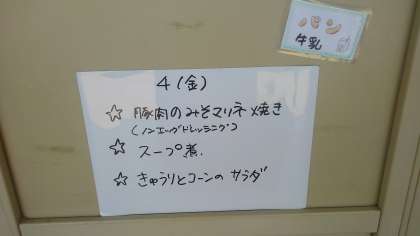 パン
牛乳
4(金)
☆ 豚肉のみそマリネ焼き
(ノンエッグドレッシング)
☆ スープ煮.
☆ きゅうりとコーンの サラダ